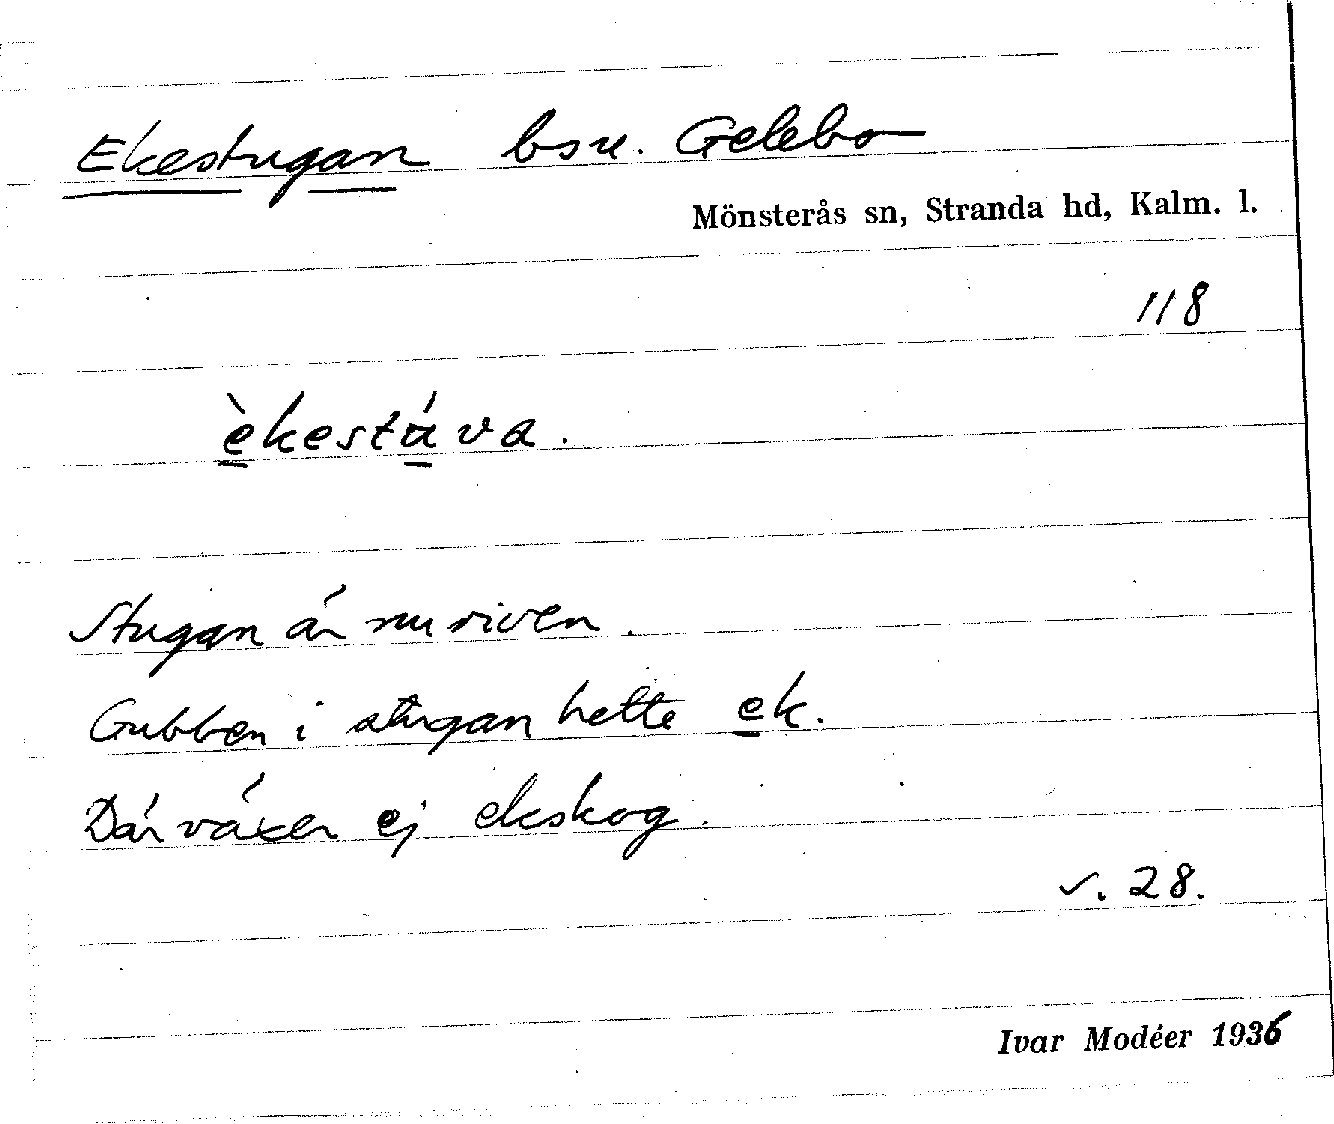 Ekestugan bsn. Gelebo
Mönsterås sn, Stranda hd, Kalm. l.
118
èkestáva.
Stugan är nu riven.
Gubben i stugan hette ek.
Där växer ej ekskog.
s. 28.
Ivar Modéer 1936